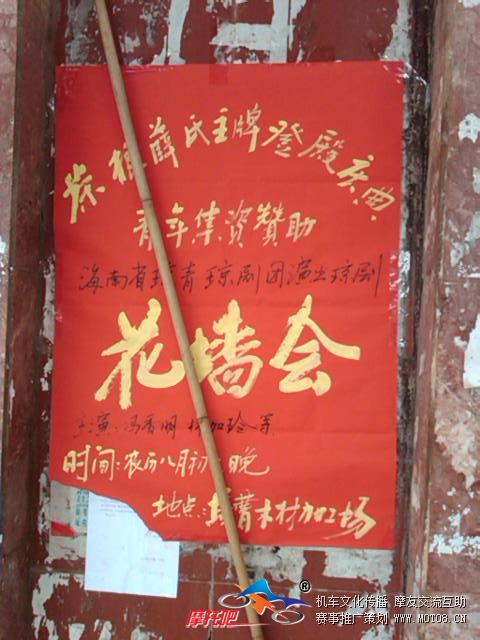 薛氏主牌登殿庆典
青年集资赞助
海南省琼青琼剧团演出琼剧
花墙会
主演:冯香明 加玲等
时间:农历八月初 晚
地点: 木材加工场
摩托吧
®
机车文化传播 摩友交流互助
赛事推广策划 WWW.MOTO8.CN